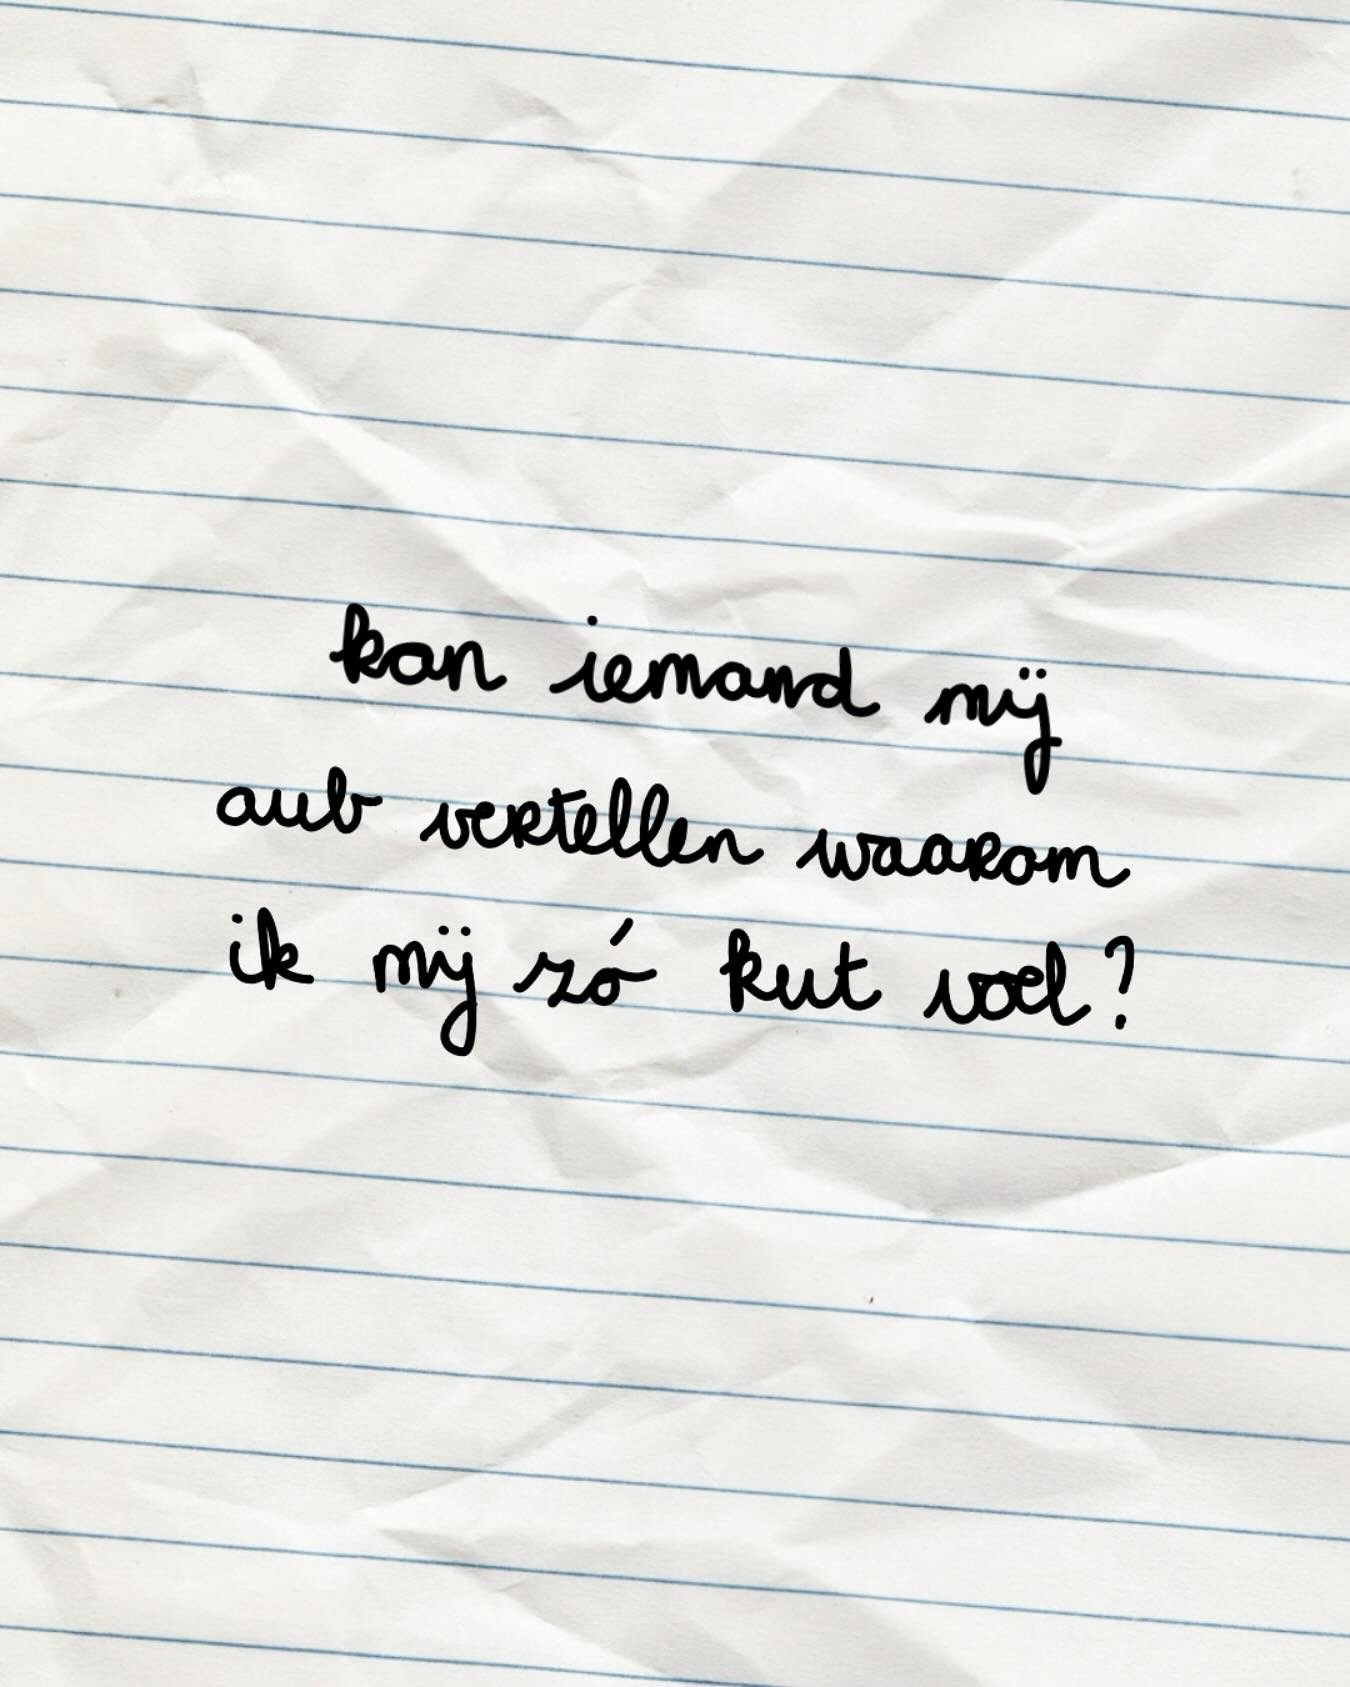 kan iemand mij
aub vertellen waarom
ik mij zó kut voel?